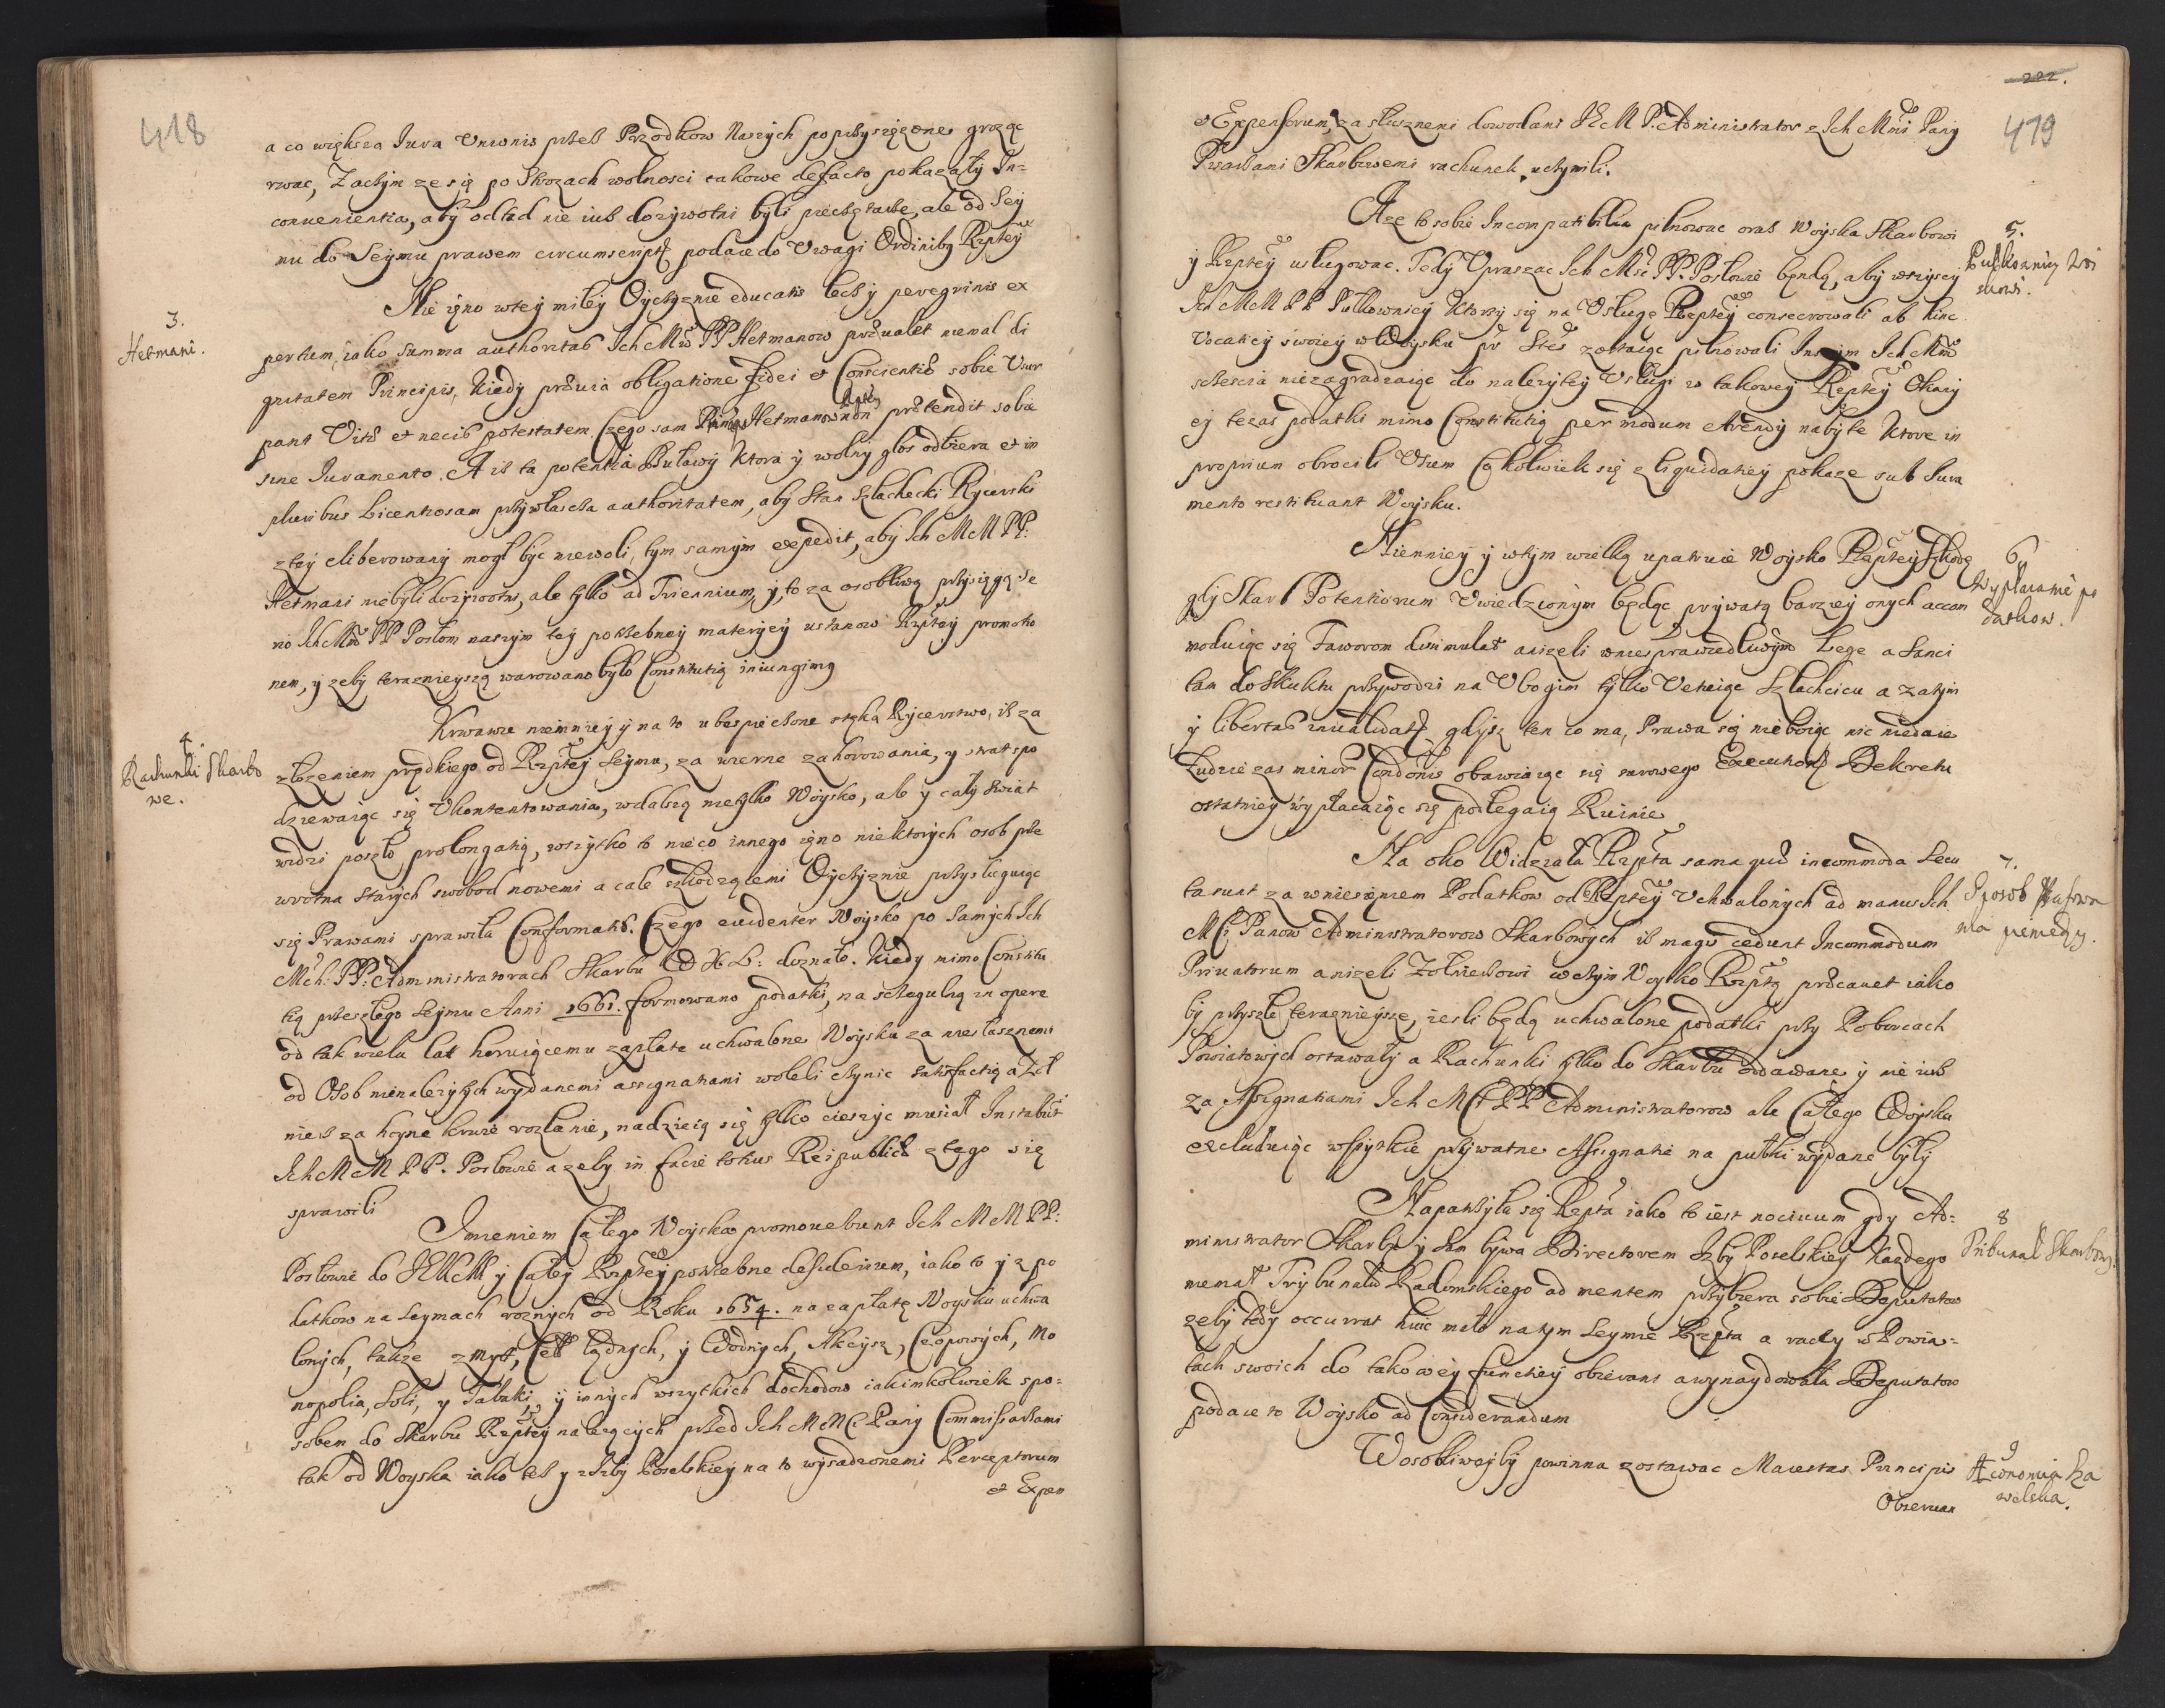 418
a co większa Iura Vnionis przez Przodkow Naszych poprzysięzone grozą
rwac, Zaczym ze się po Skrzach wolnosci takowe defacto pokazały In=
conuenientia, aby odtad nie iuz dozywotni byli pieczętarze, ale od Sey
mu do Seymu prawem circumscripti podaie do Vwagi Ordinibq Rzptey
3.
Hetmani.
Nie iyno wtey miley Oyczyznie educatis lecz y peregrinis ex
pertum, iako summa authoritas Ich Mciw PP Hetmanow præualet niemal di
gnitatem Principis, Kiedy præuia obligatione Fidei et Conscientiæ sobie Vsur
pant Vitæ et necis potestatem. Czego sam Hetmanow non prætendit sobie
sine Iuramento. A iz ta potentia Buławy Ktora y wolny głos odbiera et in
pluribus Licentiosam przywłaszcza authoritatem, aby Stan Szlachecki Rycerski
ztey eliberowany mogł byc niewoli, tym samym expedit, aby Ich MM PP.
Hetmani niebyli dozywotni, ale tylko ad Triennium, y to za osobliwą przysięgą Se
rio Ich Mciw PP Posłom naszym tey potrzebney materyey ustanow Rzptey promotio
nem, y zeby teraznieyszą warowano było Constitutią iniungimq
4.
Rachunki Skarbo
we.
Krwawie niemniey y na to ubespieczone stęka Rycerstwo, iz za
złozeniem prędkiego od Rzptey Seymu, za wierne zahorowania, y strat spo
dziewaiąc się Vkontentowania, wdalszą nietylko Woysko, ale y cały swiat
widzi poszło prolongatią, wszytko to nieco innego iyno niektorych osob prze
wrotna starych swobod nowemi a cale szkodzącemi Oyczyznie przysługuiąc
się Prawami sprawiła Conformatio. Czego euidenter Woysko po samych Ich
Mch. PP. Administratorach Skarbu W X L: doznało. Kiedy mimo Constitu
tią przeszłego Seymu Anni 1661. formowano podatki, na szczegulną in opere
od tak wielu lat horuiącemu zapłatę uchwalone Woysku za niesłusznemi
od Osob nienalezytych wydanemi assignatiami woleli czynic satisfactią a Zoł
nierz za hoyne krwie rozlanie, nadzieią się tylko cieszyc musiał Instabūt
Ich MM PP. Posłowie azeby in facie totius Reipublicæ ztego się
sprawili
Imieniem Całego Woyska promouebunt Ich MM PP.
Posłowie do JKM y Całey Rzptey potrzebne desiderium, iako to y z po
datkow na Seymach roznych od Roku 1654. na zapłatę Woysku uchwa
lonych, takze z myt, Ceł lądnych, y Wodnych, Akcyz, Czopowych, Mo
nopolia, Soli, y Tabaki, y innych wszytkich dochodow iakimkolwiek spo=
sobem do Skarbu Rzptey nalezących przed Ich MMci Pany Commissarzami
tak od Woyska iako tez y z Izby Poselskiey na to wysadzonemi Perceptorum
et Expen
222.
479
et Expensorum, za słusznemi dowodami JEM P. Administrator z Ich Mciami Pany
Pisarzami Skarbowemi rachunek uczynili.
5.
Pułkownicy Woi
skowi.
A ze to sobie Incompatibilia pilnowac oraz Woyska Skarbowi
y Rzptey usługowac. Tedy Vpraszac Ich Mci PP. Posłowie będą, aby wszyscy
Ich MM PP Pułkownicy Ktorzy się na Vsługę Rzptey consecrowali ab hinc
Vocatiey swoiey w Woysku zostaiąc pilnowali Inszym Ich Mciom
sczescia niezagradzaiąc do nalezytey Vsługi w takowey Rzptey Okazy
ey tezas podatki mimo Constitutią per modum Arendy nabyte Ktore in
proprium obrocili Vsum Cokolwiek się z liquidatiey pokaze sub Iura
mento restituant Woysku.
6
Wypłacanie po
datkow.
Niemniey y wtym wielką upatruie Woysko Rzptey Szkodę
gdy Skarb Potentiorum Vwiedzionym będąc prywatą barziey onych accom
moduiąc się Faworom dissimulat anizeli wniesprawiedliwym Lege a Sanci
tam do skutku przywodzi na Vbogim tylko Vetuiąc Szlachcicu a zatym
y libertas inualidatq gdysz ten co ma, Prawa się nieboiąc nic niedaie
Ludzie zas minor Condonis obawiaiąc się surowego Executions Dekretu
ostatniey wypłacaiąc się podlegaią Ruinie
7.
Sposob szafowa
nia pieniędzy.
Na oko Widziała Rzpta sama quæ incommoda Secu
ta sunt za wniesieniem Podatkow od Rzptey Vchwalonych ad manus Ich
MCi Panow Administratorow Skarbowych iz magis cedunt Incommodum
Priuatorum anizeli Zołnierzowi wczym Woysko Rzptą præcauet iako
by przyszłe teraznieysze, iesli będą uchwalone podatki przy Poborcach
Powiatowych ostawały a Rachunki tylko do Skarbu oddawane y nie iuz
za Assignatiami Ich MCi PP Administratorow ale Całego Woyska
excluduiąc wszytkie prywatne Assignatie na pułki wydane były
8
Tribunał Skarbowy.
Napatrzyła się Rzpta iako to iest nociuum gdy Ad=
ministrator Skarbu y sam bywa Directorem Izby Poselskiey Kazdego
niemal Trybunału Radomskiego ad mentem przybiera sobie Deputatow
zeby tedy occurrat huic malo natym Seymie Rzpta a raczy w Powia=
tach swoich do takowey functiey obierani a wynaydowała Deputatow
podaie to Woysko ad Considerandum
9
Æconomia Sza
welska.
Wosobliwszyby powinna zostawac Maiestas Principis
Obseruan